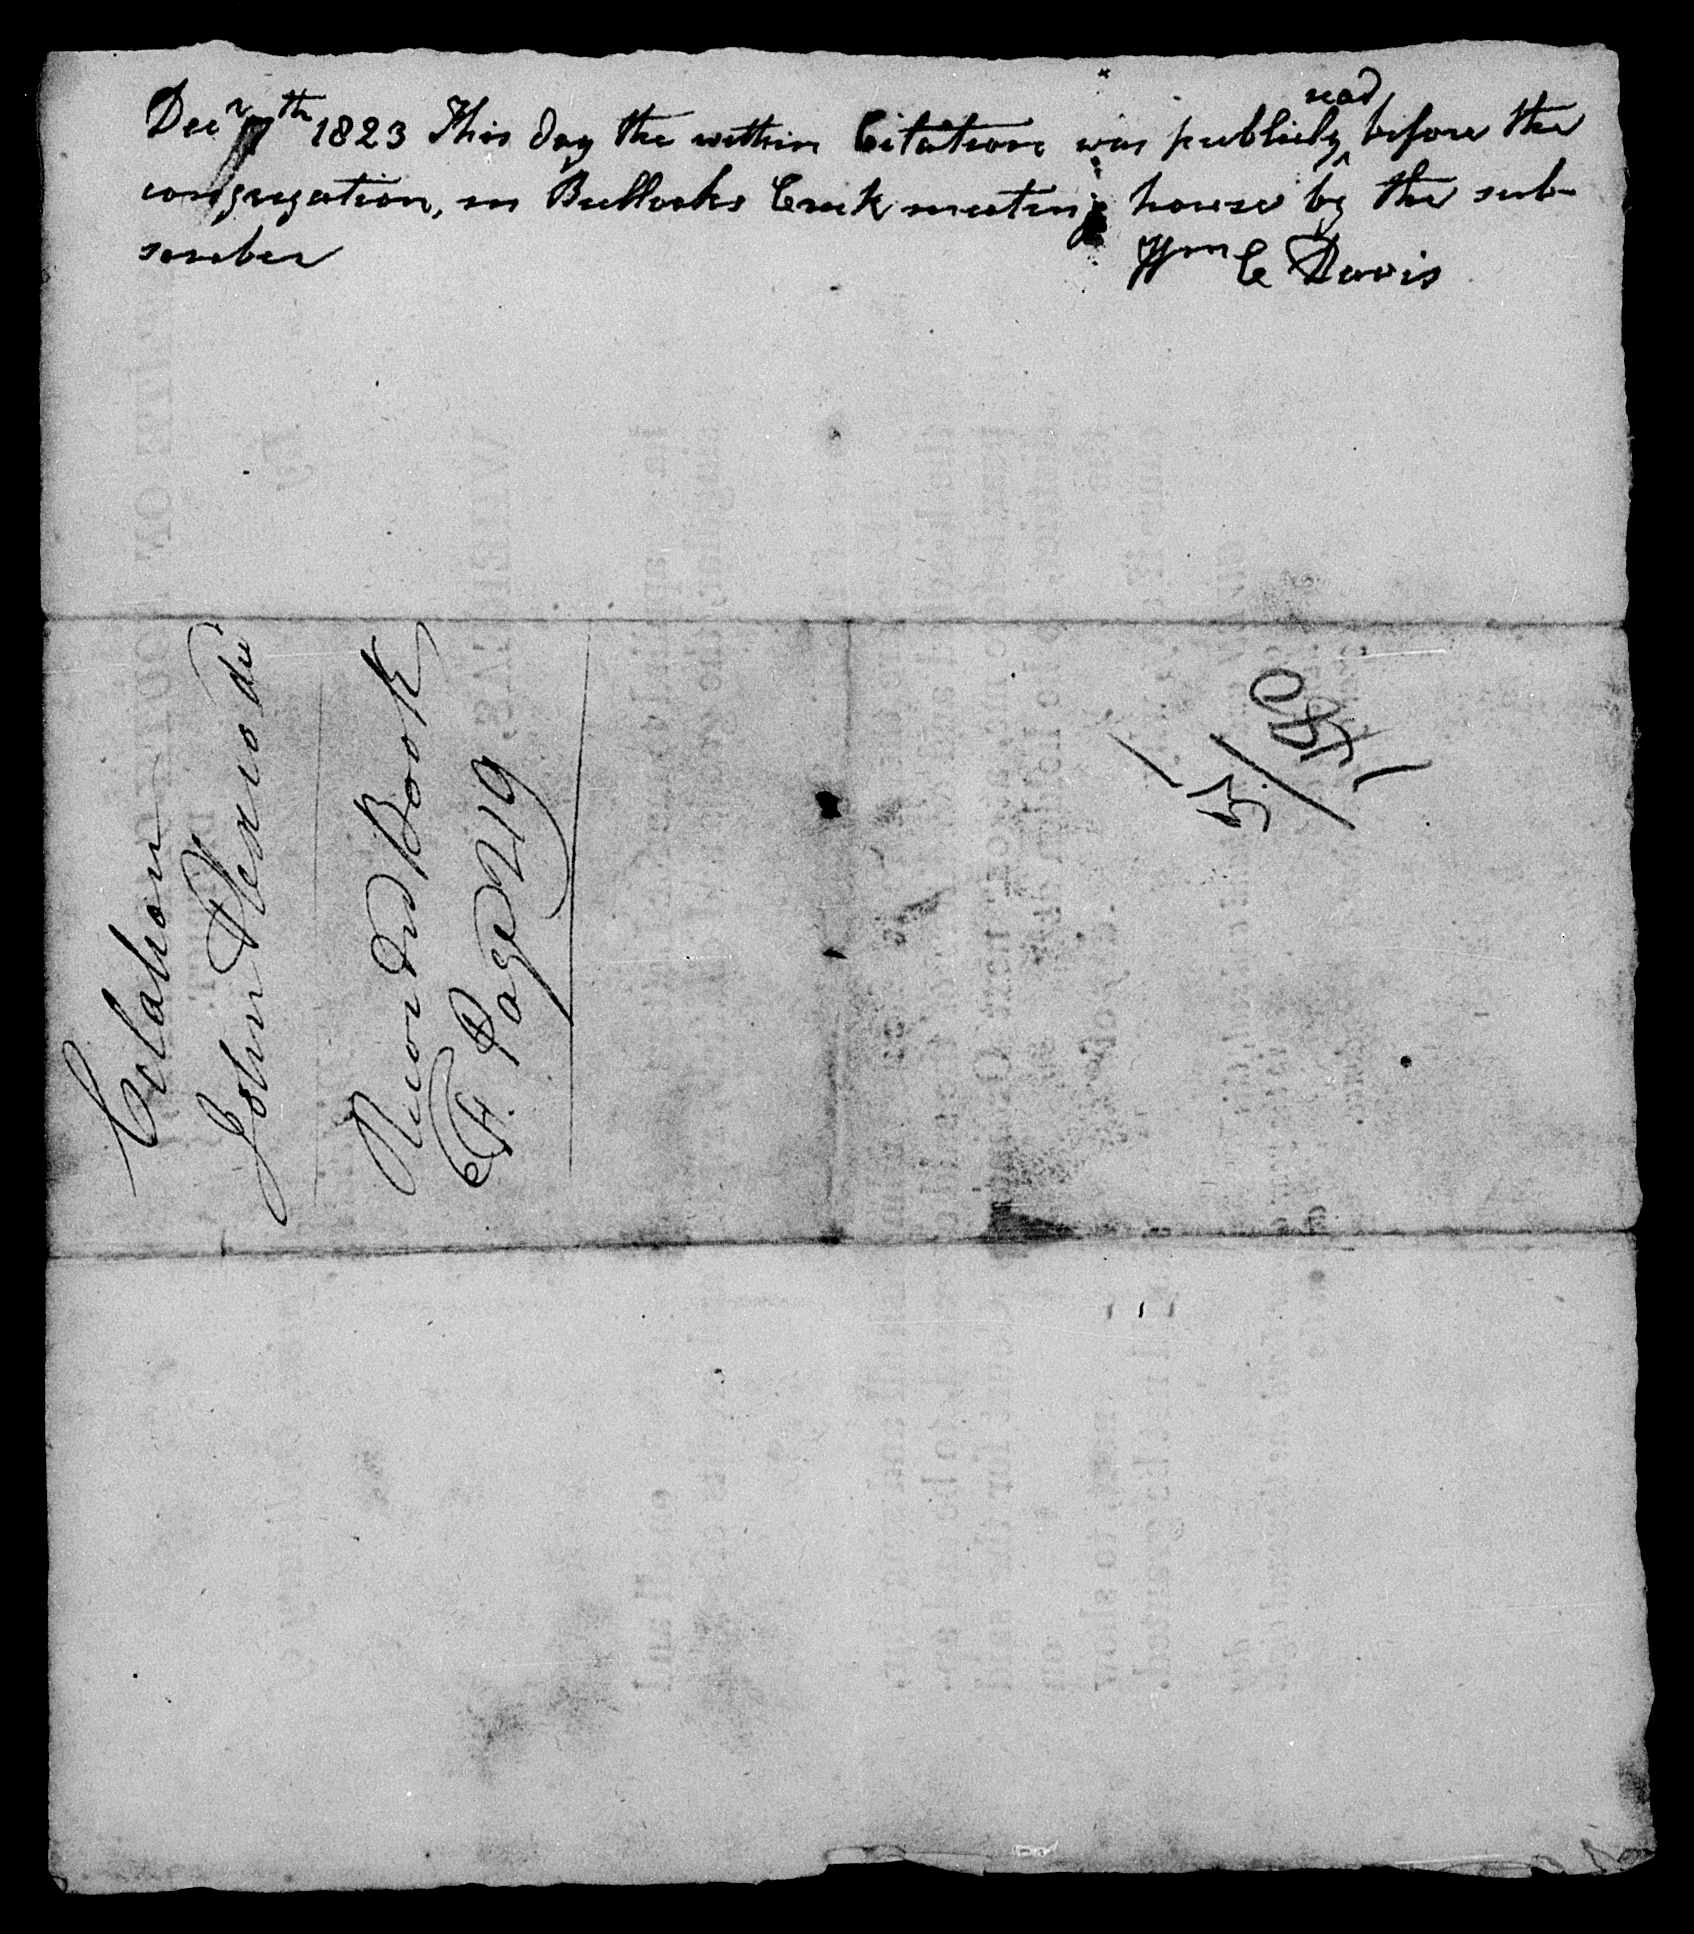 Decr 7th 1823 This day the within Citation was publicly read before the
congregation, in Bullocks Creek meeting house by the sub-
scriber
Wm C Davis
Citation
John
Recorded Book
F. Page 219